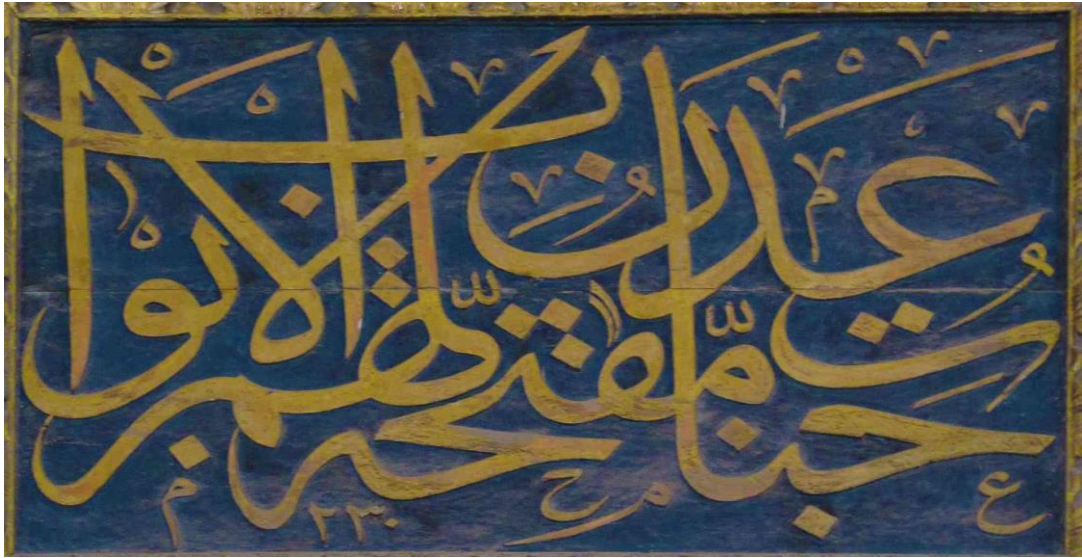 جنّات عدن مفتّحة لّهم الابواب
٢٣٠